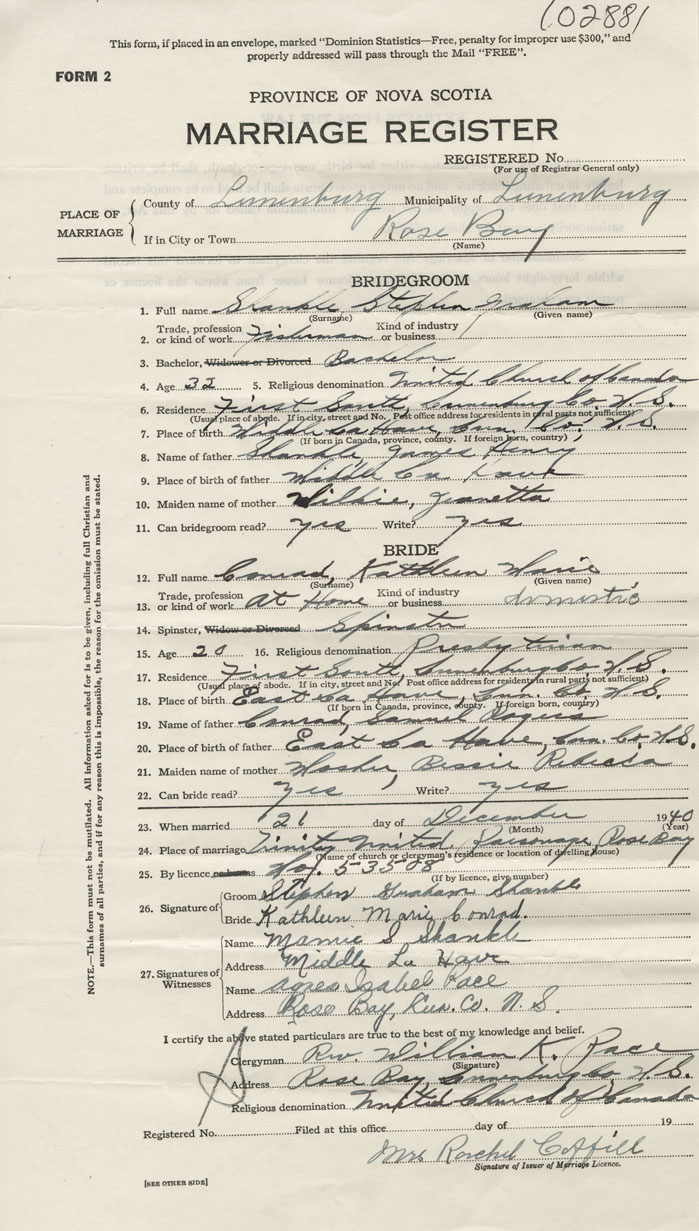 (02881
This form, if placed in an envelope, marked "Dominion Statistics—Free, penalty for improper use $300," and
properly addressed will pass through the Mail "FREE".
FORM 2
PROVINCE OF NOVA SCOTIA
MARRIAGE REGISTER
REGISTERED No.
(For use of Registrar General only)
PLACE OF MARRIAGE
County of Lunenburg Municipality of Lunenburg
If in City or Town Rose Bay
(Name)
BRIDEGROOM
1. Full name Shankle, Stephen Graham
(Surname) (Given name)
2. Trade, profession or kind of work Fisherman Kind of industry or business
3. Bachelor, Widower or Divorced Bachelor
4. Age 32 5. Religious denomination United Church of Canada
6. Residence First South, Lunenburg Co. N.S.
(Usual place of abode. If in city, street and No. Post office address for residents in rural parts not sufficient)
7. Place of birth Middle La Have, Lun. Co. N.S.
(If born in Canada, province, county. If foreign born, country)
8. Name of father Shankle, James Henry
9. Place of birth of father Middle La Have
10. Maiden name of mother Wilkie, Jeanetta
11. Can bridegroom read? yes Write? yes
BRIDE
12. Full name Conrad, Kathleen Marie
(Surname) (Given name)
13. Trade, profession or kind of work At Home Kind of industry or business domestic
14. Spinster, Widow or Divorced Spinster
15. Age 28 16. Religious denomination Presbyterian
17. Residence First South, Lunenburg Co. N.S.
(Usual place of abode. If in city, street and No. Post office address for residents in rural parts not sufficient)
18. Place of birth East La Have, Lun. Co. N.S.
(If born in Canada, province, county. If foreign born, country)
19. Name of father Conrad, Samuel Rogers
20. Place of birth of father East La Have, Lun. Co. N.S.
21. Maiden name of mother Mosher, Bessie
22. Can bride read? yes Write? yes
23. When married 21 day of December 1940
(Month) (Year)
24. Place of marriage Trinity United Parsonage, Rose Bay
(Name of church or clergyman's residence or location of dwelling house)
25. By licence or banns No. 53508
(If by licence, give number)
26. Signature of
Groom Stephen Graham Shankle
Bride Kathleen Marie Conrad.
27. Signatures of Witnesses
Name Mamie S Shankle
Address Middle La Have
Name Agnes Isabel Pace
Address Rose Bay, Lun. Co. N.S.
I certify the above stated particulars are true to the best of my knowledge and belief.
Clergyman Rev. William K. Pace
(Signature)
Address Rose Bay, Lunenburg Co. N.S.
Religious denomination United Church of Canada
Registered No. Filed at this office day of 19
Mrs Rachel Coffill
Signature of Issuer of Marriage Licence.
[SEE OTHER SIDE]
NOTE.—This form must not be mutilated. All information asked for is to be given, including full Christian and
surnames of all parties, and if for any reason this is impossible, the reason for the omission must be stated.